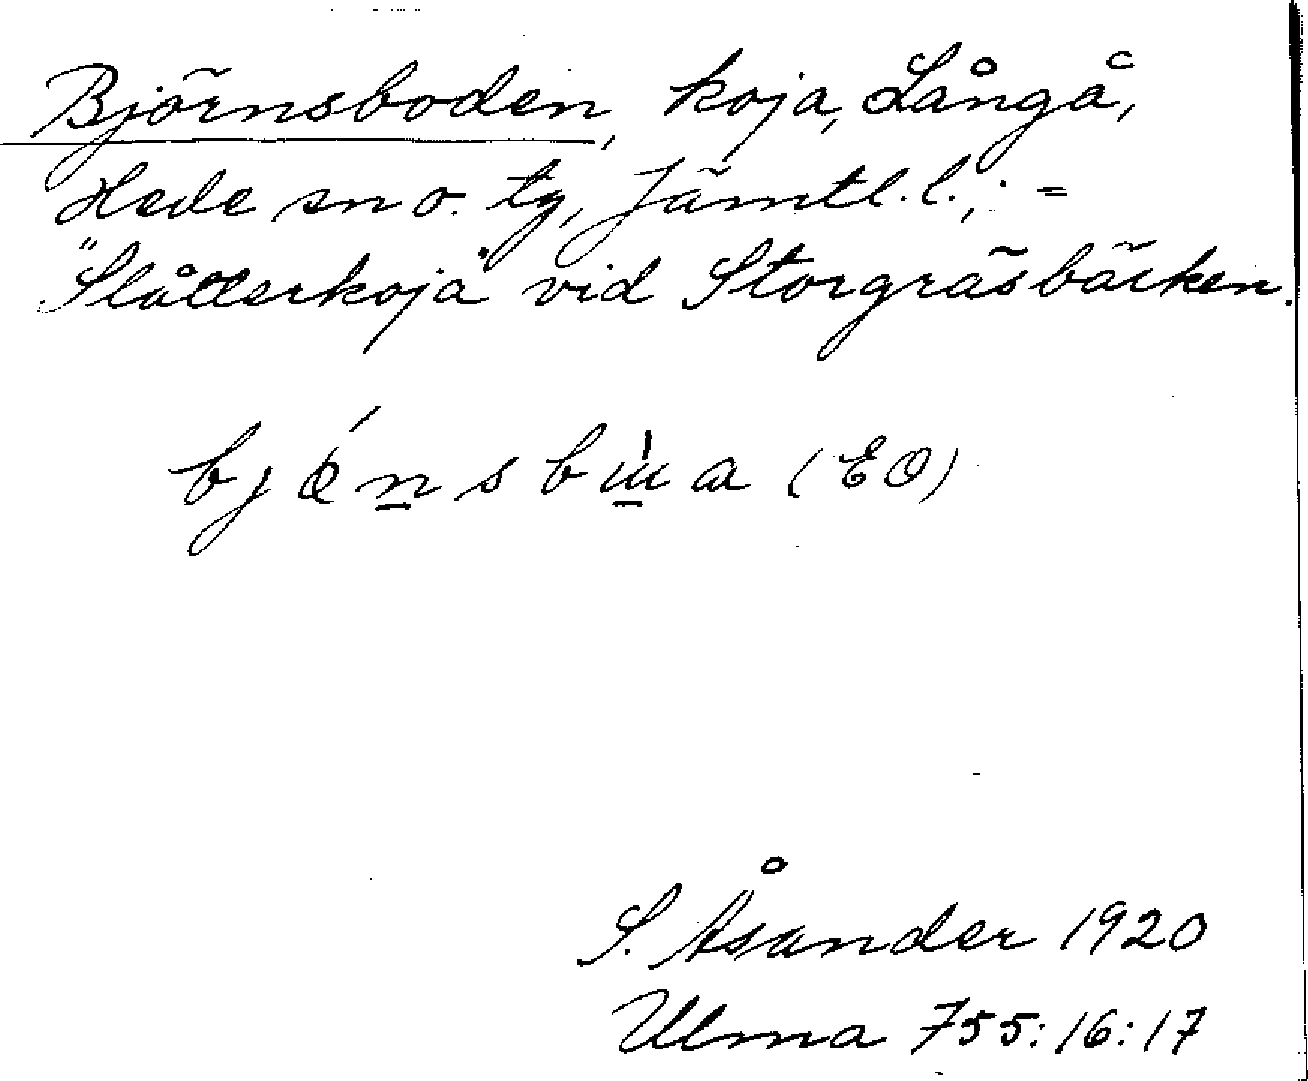 Björnsboden, koja, Långå,
Hede sn o. tg, Jämtl. l.; =
"Slåtterkoja" vid Storgräsbäcken.
(EO)
S. Åsander 1920
Ulma 755:16:17